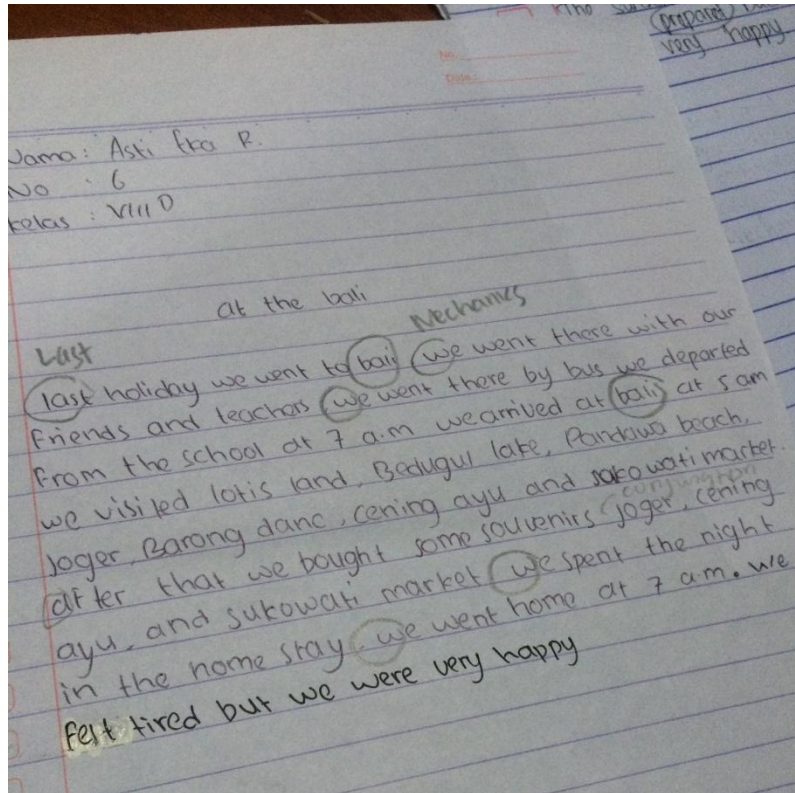 prepared
very happy
No.
Date:
Nama: Asti Eka R.
No : 6
Kelas : VIII D
at the bali
Mechanics
Last
last holiday we went to bali we went there with our
Friends and teachers we went there by bus we departed
From the school at 7 a.m we arrived at bali at 5 am
we visited lotis land, Bedugul lake, Pandawa beach,
Joger, Barong danc, cening ayu and sakowati market.
conjungtion
after that we bought some souvenirs joger, cening
ayu, and sukowati market we spent the night
in the home stay. we went home at 7 a.m. we
felt tired but we were very happy